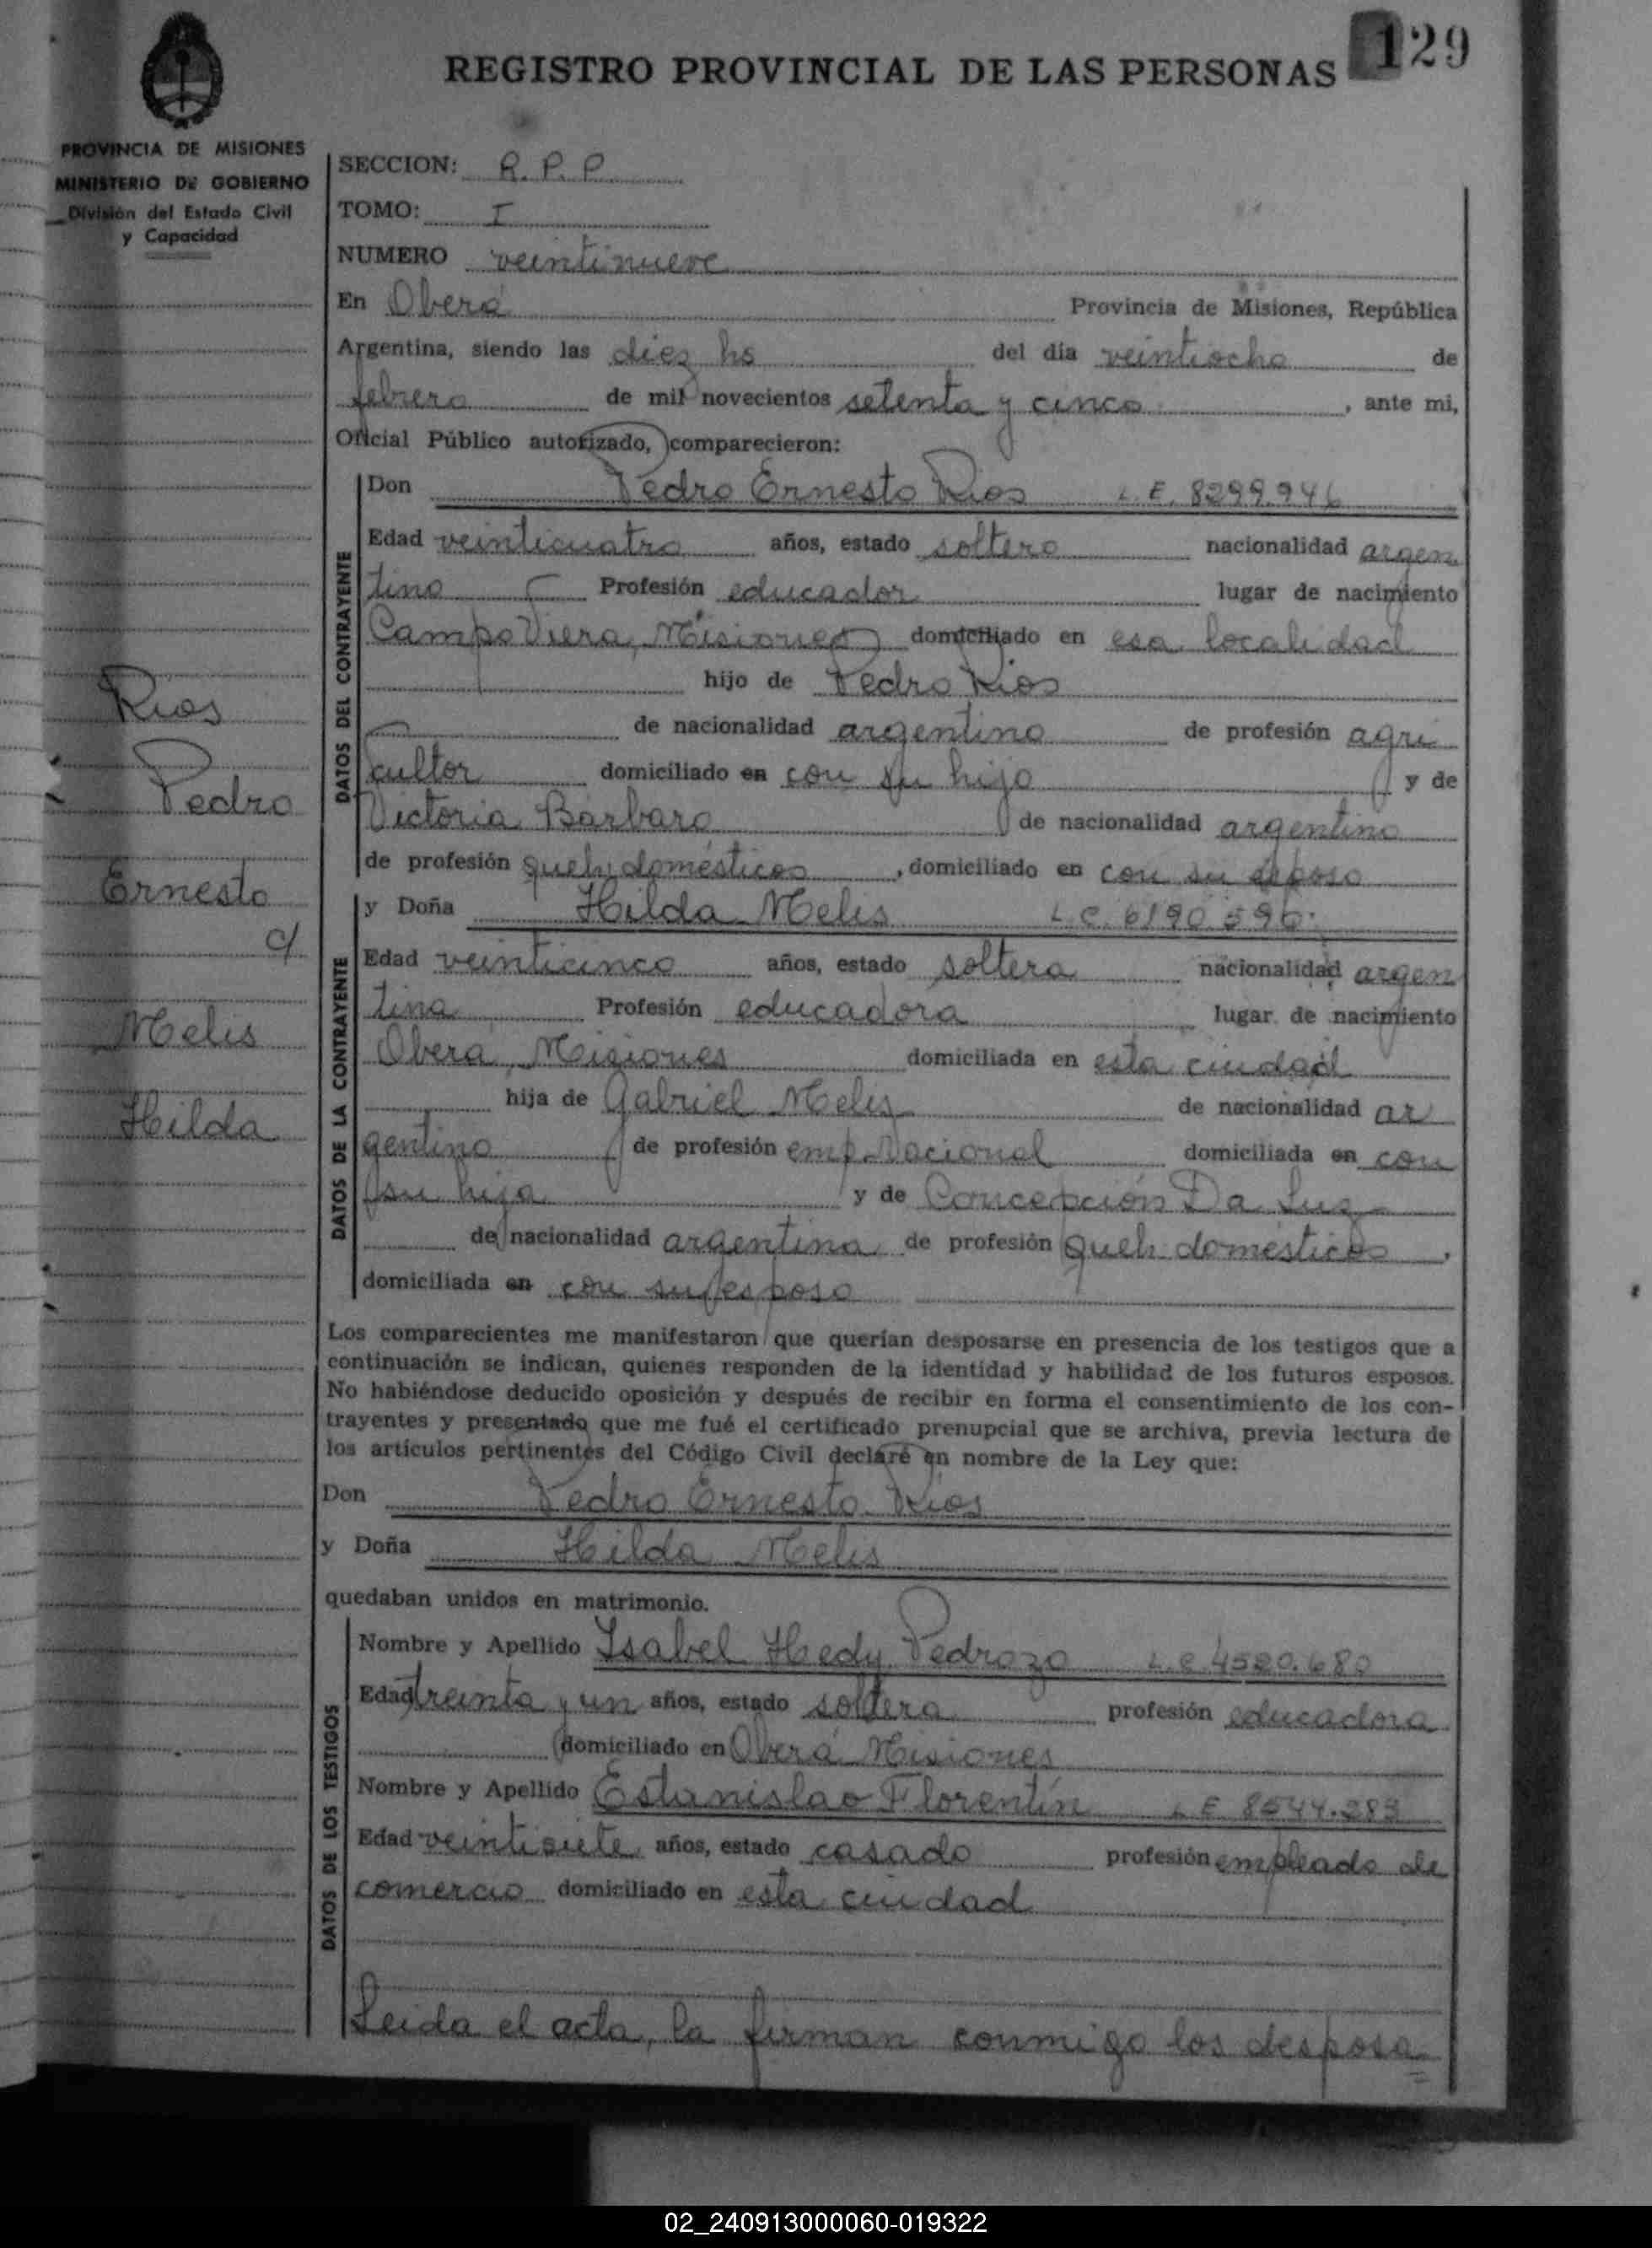 129
REGISTRO PROVINCIAL DE LAS PERSONAS
PROVINCIA DE MISIONES
MINISTERIO DE GOBIERNO
División del Estado Civil
y Capacidad
SECCION: R. P. P.
TOMO: I
NUMERO veintinueve
En Oberá Provincia de Misiones, República
Argentina, siendo las diez hs del día veintiocho de
febrero de mil novecientos setenta y cinco, ante mi,
Oficial Público autorizado, comparecieron:
DATOS DEL CONTRAYENTE
Don Pedro Ernesto Rios L.E. 8299.946
Edad veinticuatro años, estado soltero nacionalidad argen
tino Profesión educador lugar de nacimiento
Campo Viera, Misiones domiciliado en esa localidad
hijo de Pedro Rios
de nacionalidad argentino de profesión agri
cultor domiciliado en con su hijo y de
Victoria Barbaro de nacionalidad argentina
de profesión queh. domésticos, domiciliado en con su esposo
Rios
Pedro
Ernesto
c/
Melis
Hilda
DATOS DE LA CONTRAYENTE
y Doña Hilda Melis L.C. 6190.596.
Edad veinticinco años, estado soltera nacionalidad argen
tina Profesión educadora lugar de nacimiento
Oberá, Misiones domiciliada en esta ciudad
hija de Gabriel Melis de nacionalidad ar
gentino de profesión emp. Nacional domiciliada en con
su hija y de Concepción Da Luz
de nacionalidad argentina de profesión queh. domésticos,
domiciliada en con su esposo
Los comparecientes me manifestaron que querían desposarse en presencia de los testigos que a
continuación se indican, quienes responden de la identidad y habilidad de los futuros esposos.
No habiéndose deducido oposición y después de recibir en forma el consentimiento de los con-
trayentes y presentado que me fué el certificado prenupcial que se archiva, previa lectura de
los artículos pertinentes del Código Civil declaré en nombre de la Ley que:
Don Pedro Ernesto Rios
y Doña Hilda Melis
quedaban unidos en matrimonio.
DATOS DE LOS TESTIGOS
Nombre y Apellido Isabel Hedy Pedrozo L.C. 4520.680
Edad treinta y un años, estado soltera profesión educadora
domiciliado en Oberá Misiones
Nombre y Apellido Estanislao Florentín L.E 8544.283
Edad veintisiete años, estado casado profesión empleado de
comercio domiciliado en esta ciudad
Leida el acta, la firman conmigo los desposa
02_240913000060-019322